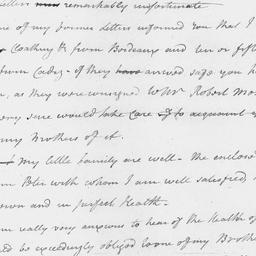 letters was remarkably unfortunate
one of my former letters informed you that I
Cloathing & from Bordeaux and ten or fift
from Cadiz - if they have arrived safe you h
as they were consigned to Mr Robert Mor
very sure would take care of to acquaint o
my Brothers of it.
My little family are well - the enclose
Peter with whom I am well satisfied,
own and in perfect Health -
am really very anxious to hear of the Health of
be exceedingly obliged to one of my Brothe